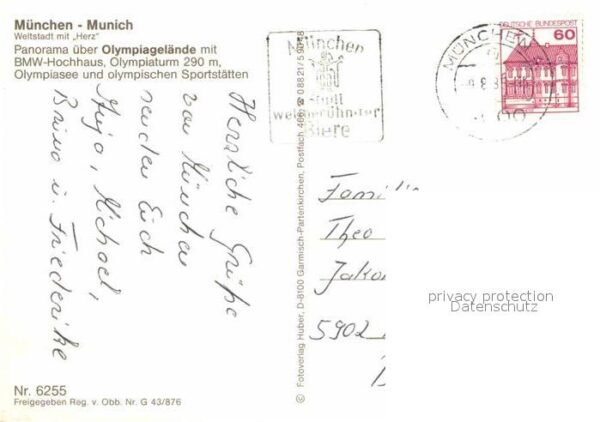 München - Munich
Weltstadt mit „Herz"
Panorama über Olympiagelände mit
BMW-Hochhaus, Olympiaturm 290 m,
Olympiasee und olympischen Sportstätten
Herzliche Grüße
von München
senden Euch
Anja, Michael,
Bruno u. Friederike
Nr. 6255
Freigegeben Reg. v. Obb. Nr. G 43/876
© Fotoverlag Huber, D-8100 Garmisch-Partenkirchen, Postfach 466, ☎ 08821/5
München
Stadt
weltberühmter
Biere
MÜNCHEN
DEUTSCHE BUNDESPOST
60
Famili
Theo
Jako
5902
privacy protection
Datenschutz